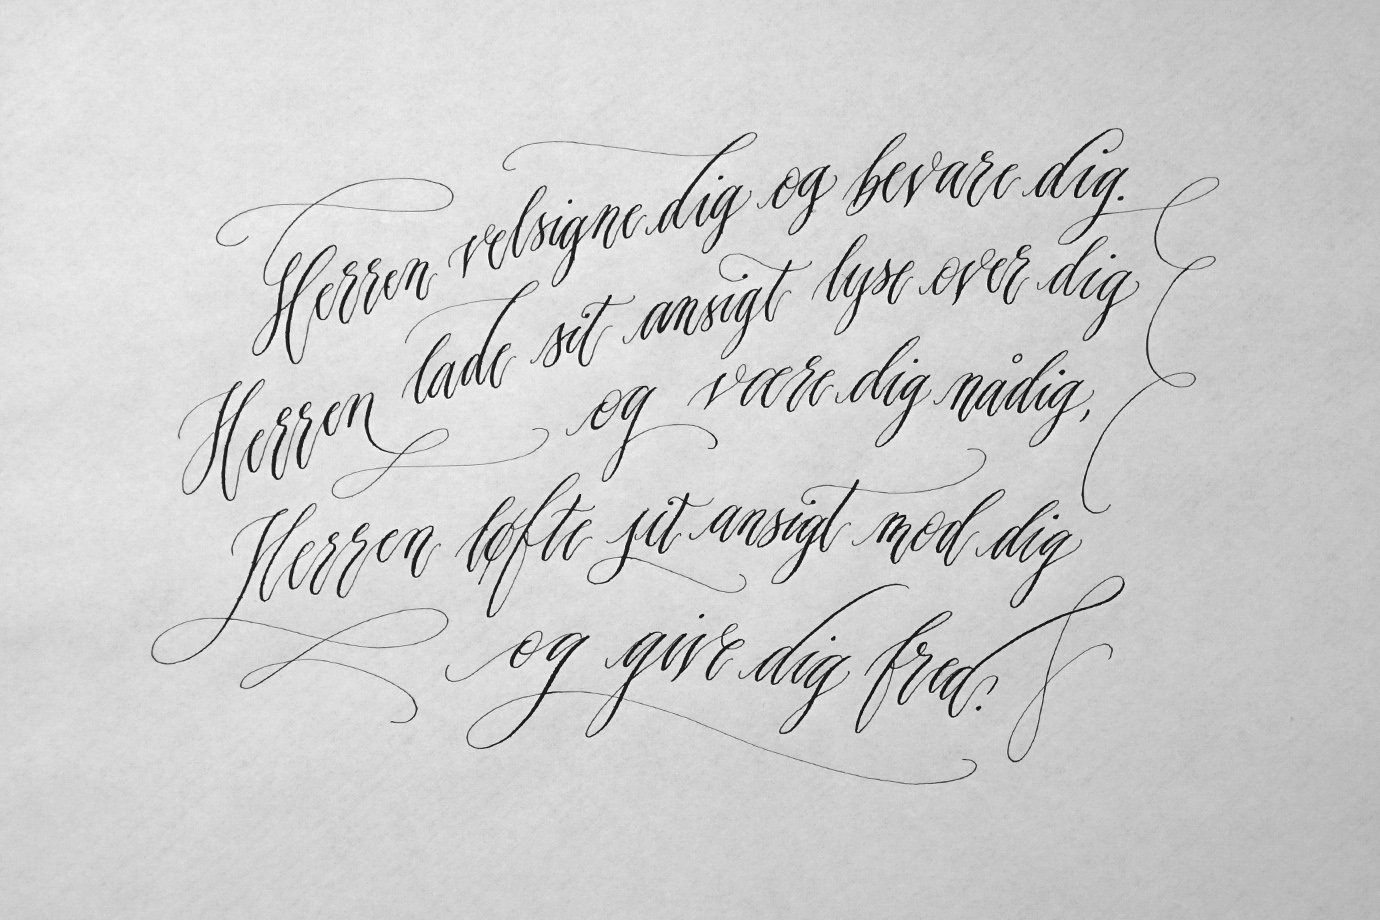 Herren velsigne dig og bevare dig.
Herren lade sit ansigt lyse over dig
og være dig nådig,
Herren løfte sit ansigt mod dig
og give dig fred.